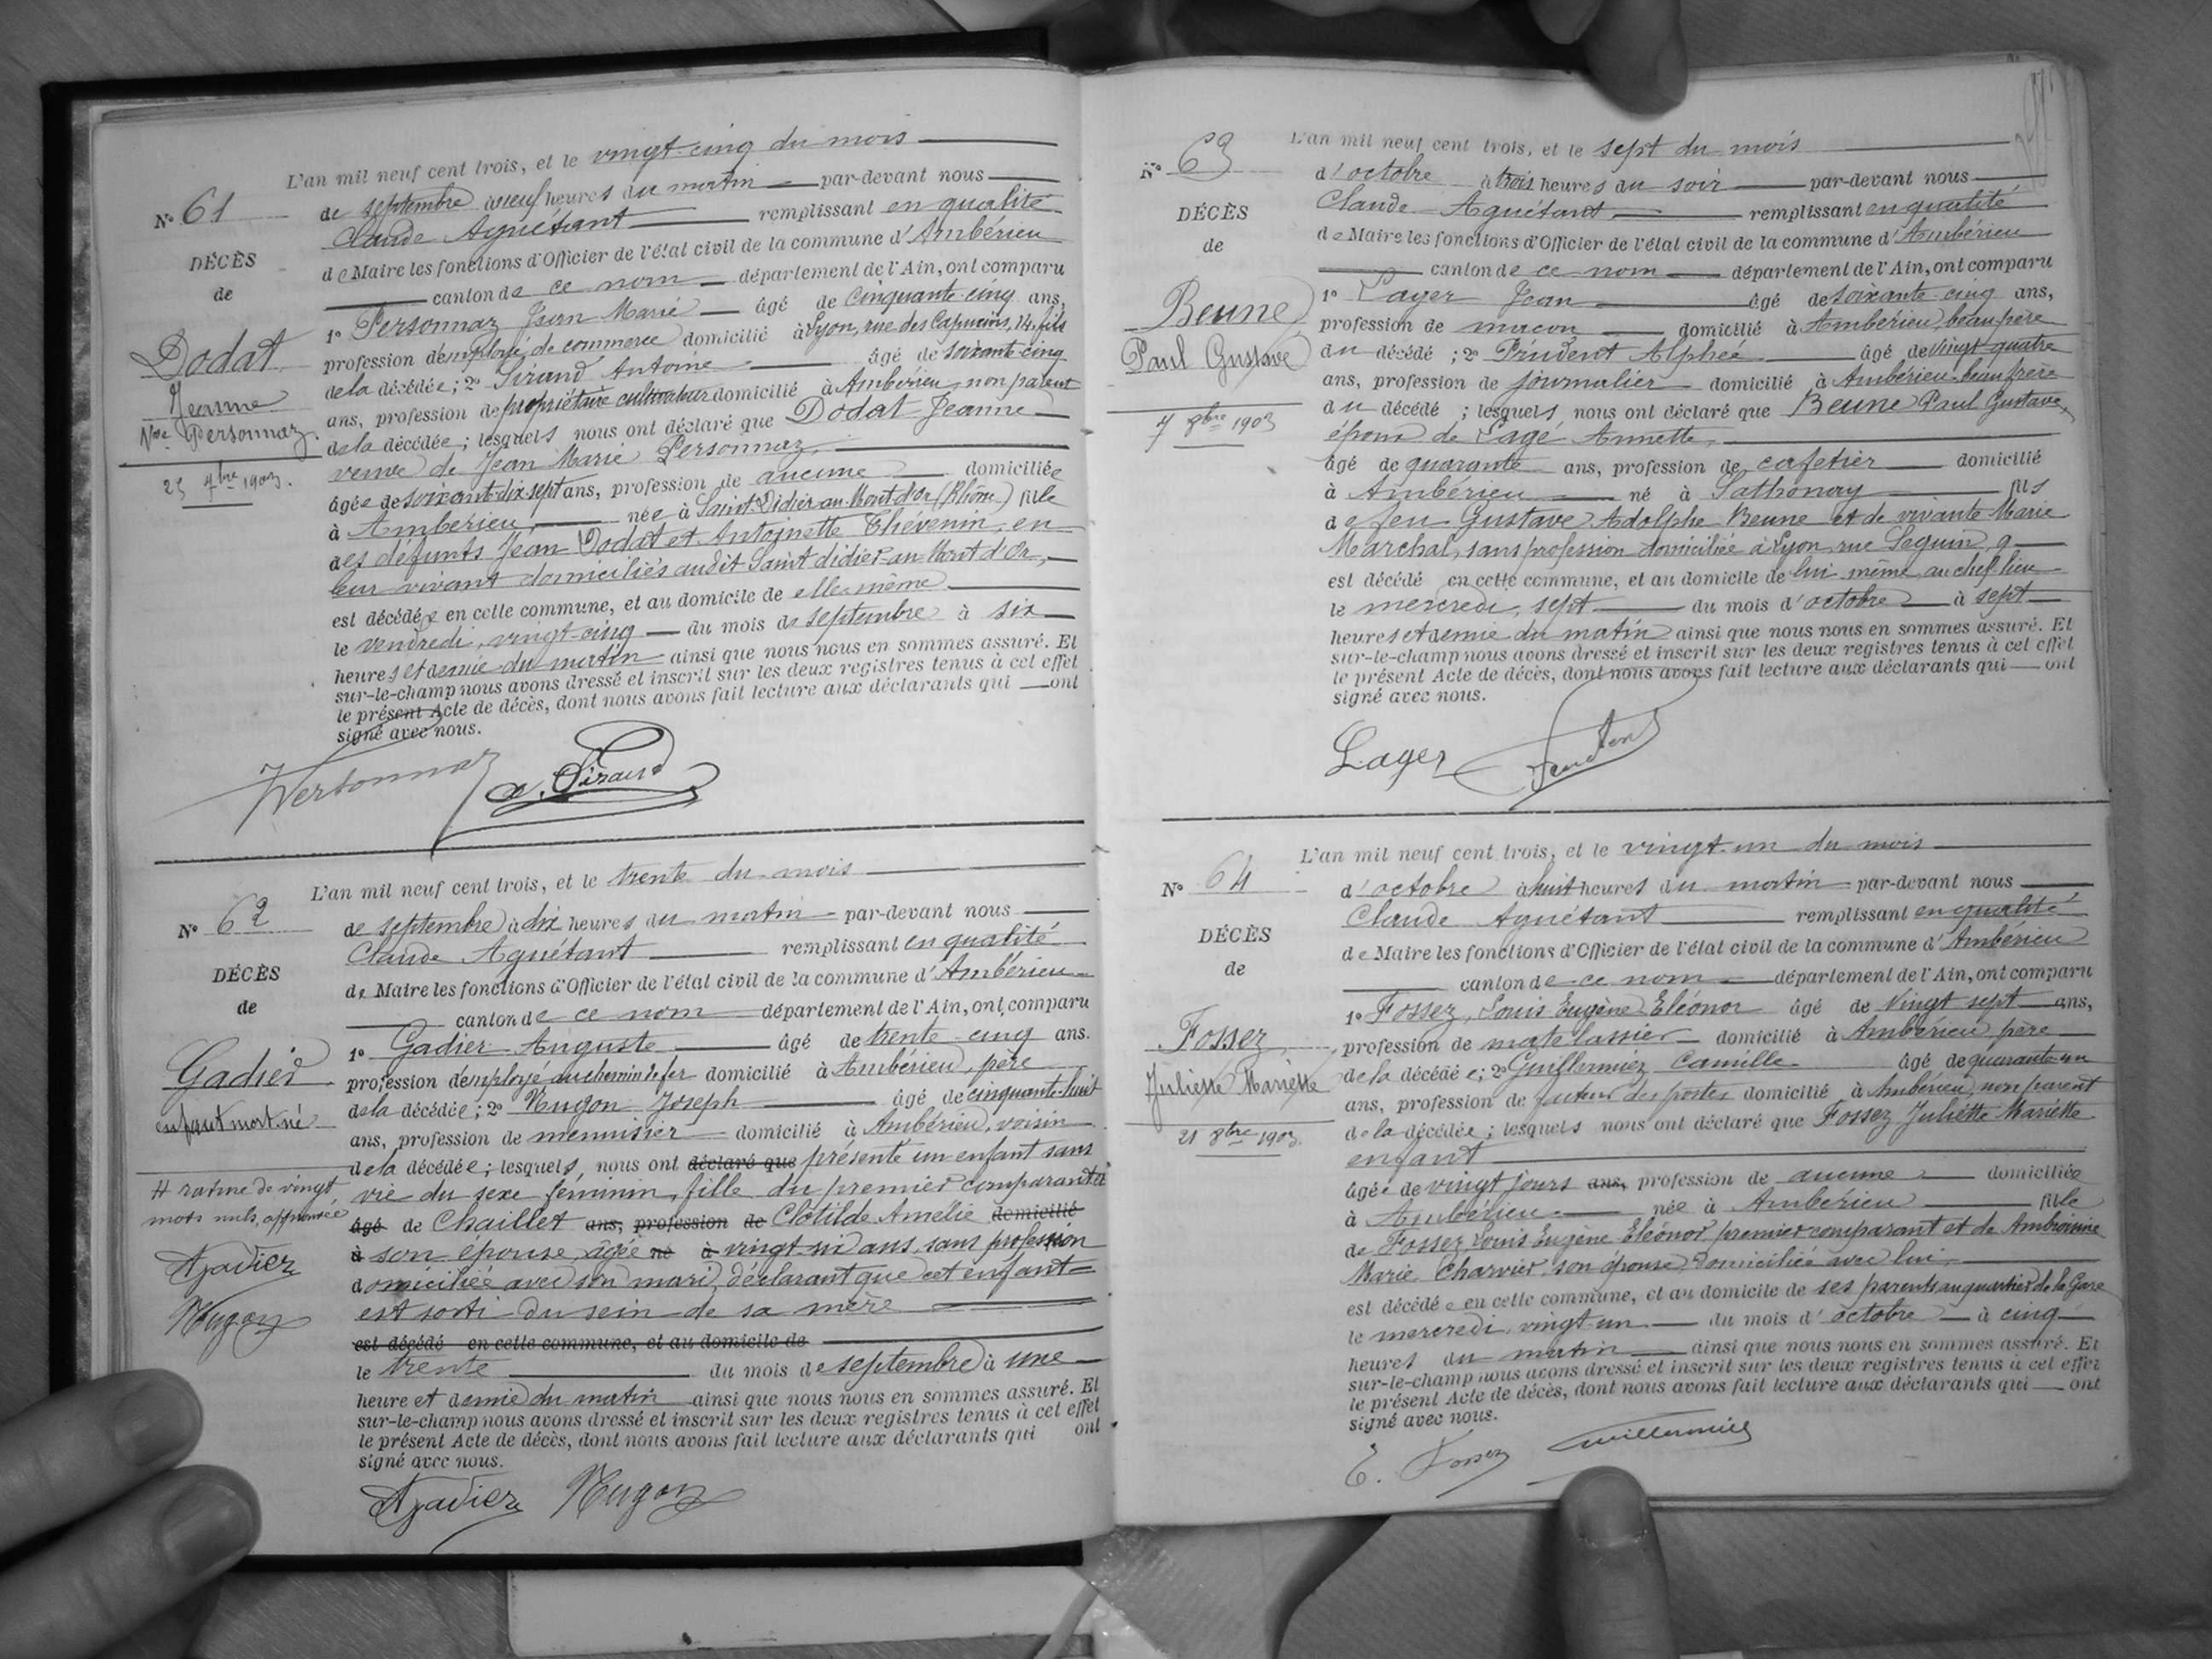 N° 61
DÉCÈS
de
Dodat
Jeanne
Vve Personnaz
25 7bre 1903.
L'an mil neuf cent trois, et le vingt-cinq du mois
de septembre à neuf heures du matin par-devant nous
Claude Aguétant remplissant en qualité
de Maire les fonctions d'Officier de l'état civil de la commune d'Ambérieu
canton de ce nom département de l'Ain, ont comparu
1° Personnaz Jean Marie âgé de cinquante-cinq ans,
profession d'employé de commerce domicilié à Lyon, rue des Capucins, 14, fils
de la décédée; 2° Sirand Antoine âgé de soixante-cinq
ans, profession de propriétaire cultivateur domicilié à Ambérieu, non parent
de la décédée; lesquels nous ont déclaré que Dodat Jeanne
veuve de Jean Marie Personnaz,
âgée de soixante-dix-sept ans, profession de aucune domiciliée
à Ambérieu, née à Saint-Didier-au-Mont-d'or (Rhône) fille
des défunts Jean Dodat et Antoinette Thévenin, en
leur vivant domiciliés audit Saint didier-au-Mont d'Or,
est décédée en cette commune, et au domicile de elle-même
le vendredi, vingt-cinq du mois de septembre à six
heures et demie du matin ainsi que nous nous en sommes assuré. Et
sur-le-champ nous avons dressé et inscrit sur les deux registres tenus à cet effet
le présent Acte de décès, dont nous avons fait lecture aux déclarants qui ont
signé avec nous.
Personnaz
A. Sirand
N° 62
DÉCÈS
de
Gadier
enfant mort-né
rature de vingt
mots nuls, approuvée
A Gadier
Nugon
L'an mil neuf cent trois, et le trente du mois
de septembre à dix heures du matin par-devant nous
Claude Aguétant remplissant en qualité
de Maire les fonctions d'Officier de l'état civil de la commune d'Ambérieu
canton de ce nom département de l'Ain, ont comparu
1° Gadier Auguste âgé de trente-cinq ans.
profession d'employé au chemin de fer domicilié à Ambérieu, père
de la décédée; 2° Nugon Joseph âgé de cinquante-huit
ans, profession de menuisier domicilié à Ambérieu, voisin
de la décédée; lesquels nous ont déclaré que présenté un enfant sans
vie du sexe féminin, fille du premier comparant et
âgé de Chaillet ans, profession de Clotilde Amélie domicilié
à son épouse, âgée né à vingt-six ans, sans profession
domiciliée avec son mari, déclarant que cet enfant
est sorti du sein de sa mère
est décédé en cette commune, et au domicile de
le trente du mois de septembre à une
heure et demie du matin ainsi que nous nous en sommes assuré. Et
sur-le-champ nous avons dressé et inscrit sur les deux registres tenus à cet effet
le présent Acte de décès, dont nous avons fait lecture aux déclarants qui ont
signé avec nous.
A Gadier Nugon
N° 63
DÉCÈS
de
Beune
Paul Gustave
7 8bre 1903
L'an mil neuf cent trois, et le sept du mois
d'octobre à trois heures du soir par-devant nous
Claude Aguétant remplissant en qualité
de Maire les fonctions d'Officier de l'état civil de la commune d'Ambérieu
canton de ce nom département de l'Ain, ont comparu
1° Lager Jean âgé de soixante-cinq ans,
profession de maçon domicilié à Ambérieu, beau père
du décédé; 2° Prudent Alphée âgé de vingt-quatre
ans, profession de journalier domicilié à Ambérieu, beau frère
du décédé; lesquels nous ont déclaré que Beune Paul Gustave,
époux de Lagé Annette,
âgé de quarante ans, profession de cafetier domicilié
à Ambérieu né à Sathonay fils
de feu Gustave Adolphe Beune et de vivante Marie
Marchal, sans profession domiciliée à Lyon, rue Seguin, 9
est décédé en cette commune, et au domicile de lui même, au chef lieu
le mercredi, sept du mois d'octobre à sept
heures et demie du matin ainsi que nous nous en sommes assuré. Et
sur-le-champ nous avons dressé et inscrit sur les deux registres tenus à cet effet
le présent Acte de décès, dont nous avons fait lecture aux déclarants qui ont
signé avec nous.
Lager Prudent
N° 64
DÉCÈS
de
Fossez
Juliette Mariette
21 8bre 1903.
L'an mil neuf cent trois, et le vingt-un du mois
d'octobre à huit heures du matin par-devant nous
Claude Aguétant remplissant en qualité
de Maire les fonctions d'Officier de l'état civil de la commune d'Ambérieu
canton de ce nom département de l'Ain, ont comparu
1° Fossez, Louis Eugène Eléonor âgé de vingt sept ans,
profession de matelassier domicilié à Ambérieu père
de la décédée; 2° Guillermiez Camille âgé de quarante-un
ans, profession de facteur des postes domicilié à Ambérieu, non parent
de la décédée; lesquels nous ont déclaré que Fossez Juliette Mariette
enfant
âgée de vingt jours ans, profession de aucune domiciliée
à Ambérieu née à Ambérieu fille
de Fossez Louis Eugène Eléonor premier comparant et de Ambroisine
Marie Charvier son épouse, domiciliée avec lui,
est décédée en cette commune, et au domicile de ses parents au quartier de la Gare
le mercredi, vingt-un du mois d'octobre à cinq
heures du matin ainsi que nous nous en sommes assuré. Et
sur-le-champ nous avons dressé et inscrit sur les deux registres tenus à cet effet
le présent Acte de décès, dont nous avons fait lecture aux déclarants qui ont
signé avec nous.
E. Fossez Guillermiez